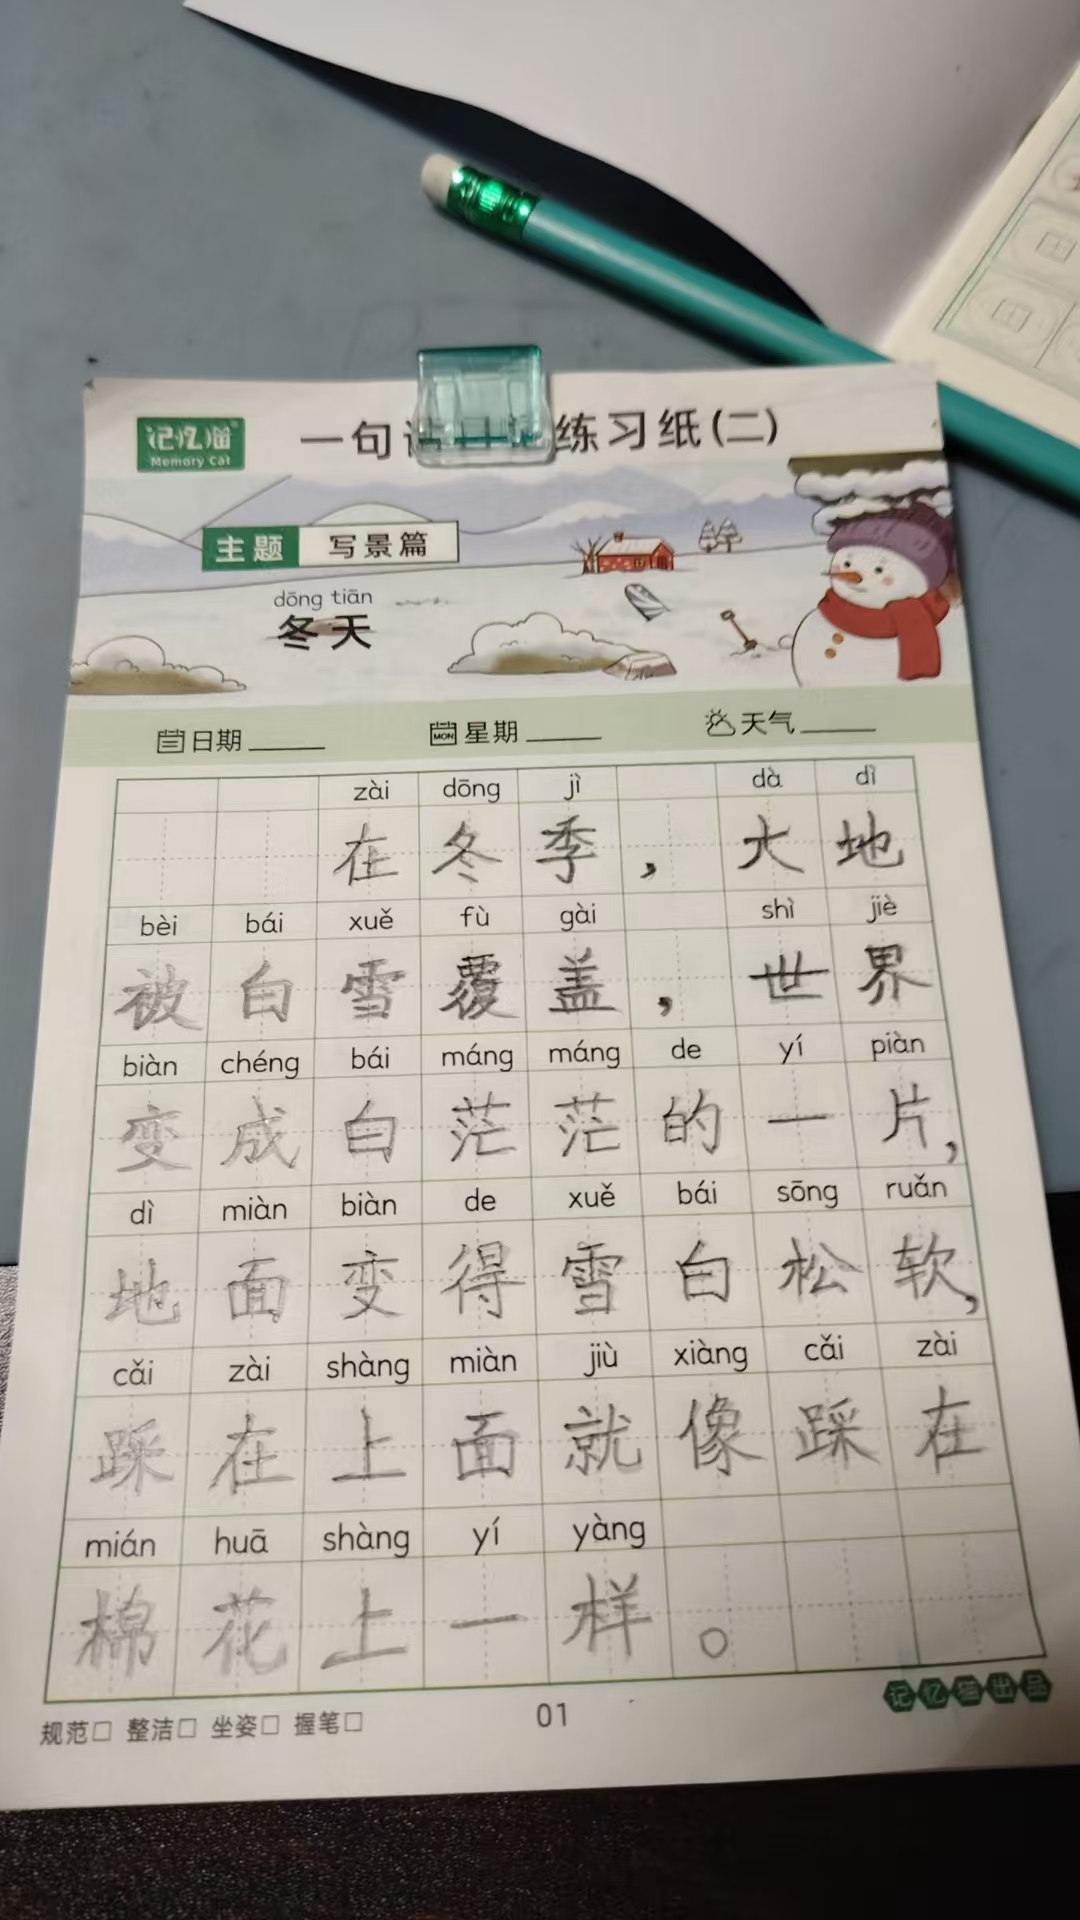 记忆猫
Memory Cat
一句 练习纸(二)
主题 写景篇
dōng tiān
冬天
日期 MON 星期 天气
zài dōng jì dà dì
在冬季，大地
bèi bái xuě fù gài shì jiè
被白雪覆盖，世界
biàn chéng bái máng máng de yí piàn
变成白茫茫的一片，
dì miàn biàn de xuě bái sōng ruǎn
地面变得雪白松软，
cǎi zài shàng miàn jiù xiàng cǎi zài
踩在上面就像踩在
mián huā shàng yí yàng
棉花上一样。
规范□ 整洁□ 坐姿□ 握笔□
01
记忆猫出品